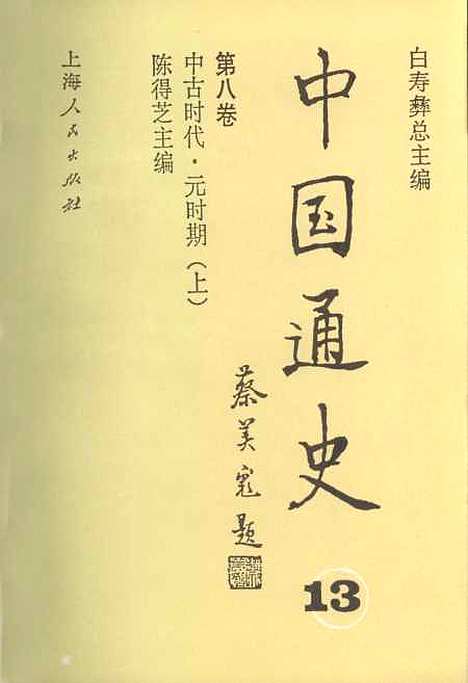 白寿彝总主编
中国通史
13
蔡美彪题
第八卷
中古时代·元时期（上）
陈得芝主编
上海人民出版社